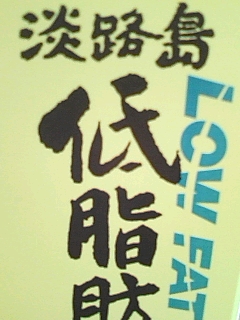 淡路島
低脂肪
LOW FAT